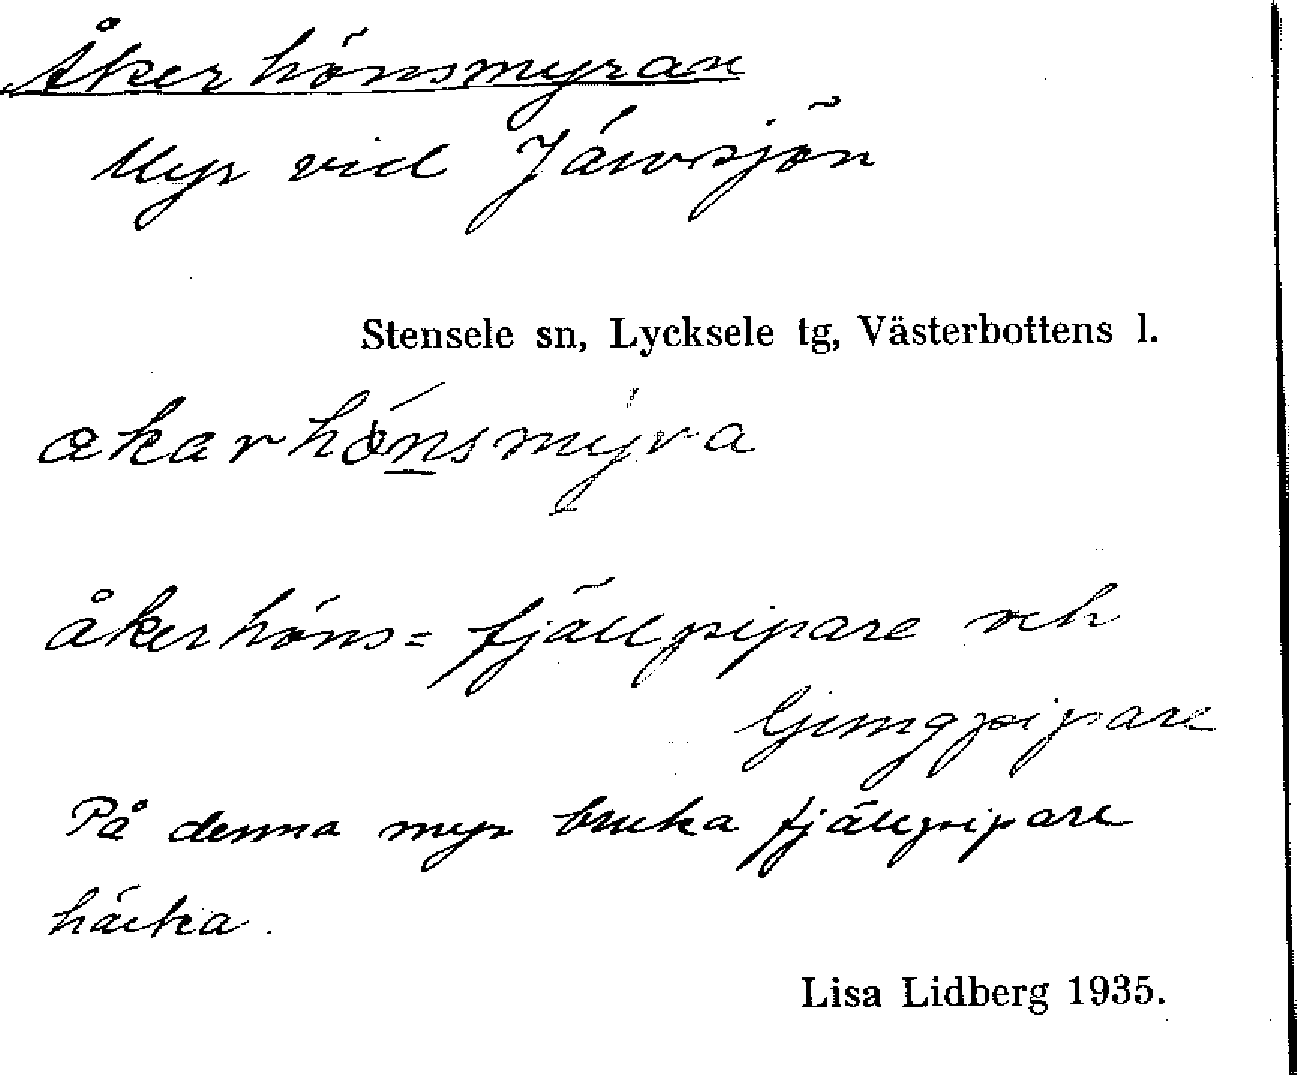 Åkerhönsmyran
Myr vid Järvsjön
Stensele sn, Lycksele tg, Västerbottens l.
åkerhöns = fjällpipare och
ljungpipare
På denna myr bruka fjällpipare
häcka.
Lisa Lidberg 1935.